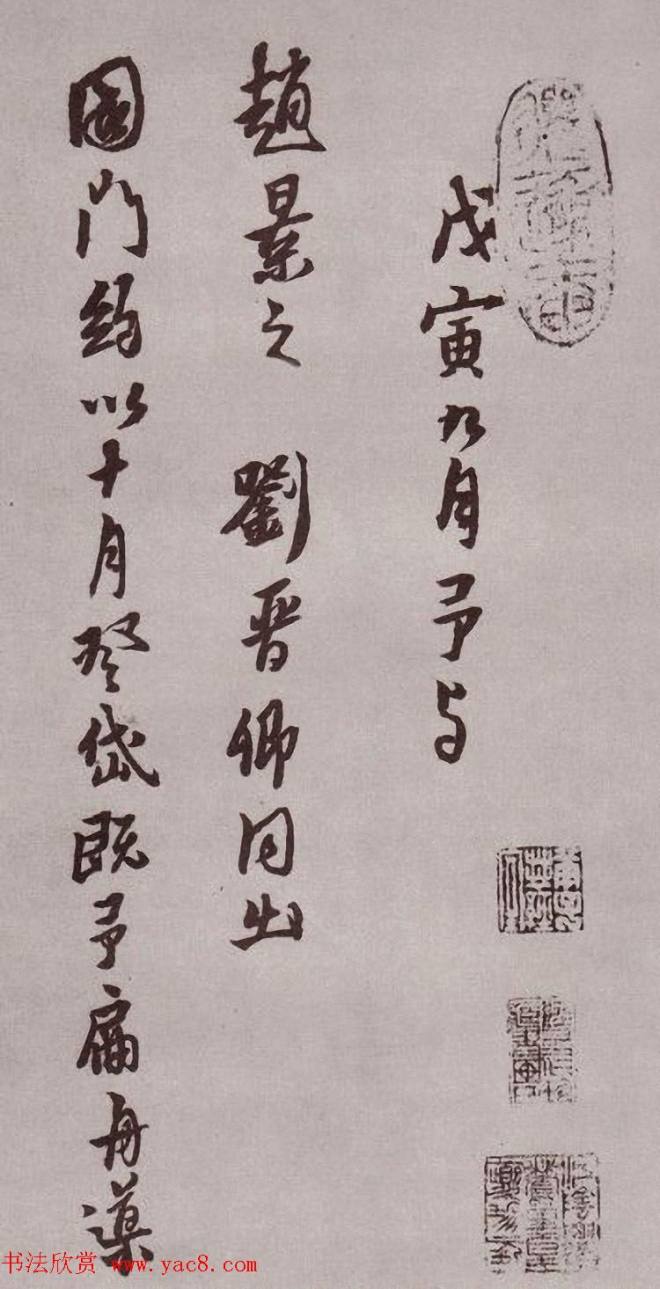 戊寅九月予与
趙景之 劉晉卿同出
國門約以十月登岱既予扁舟溯
书法欣赏 www.yac8.com